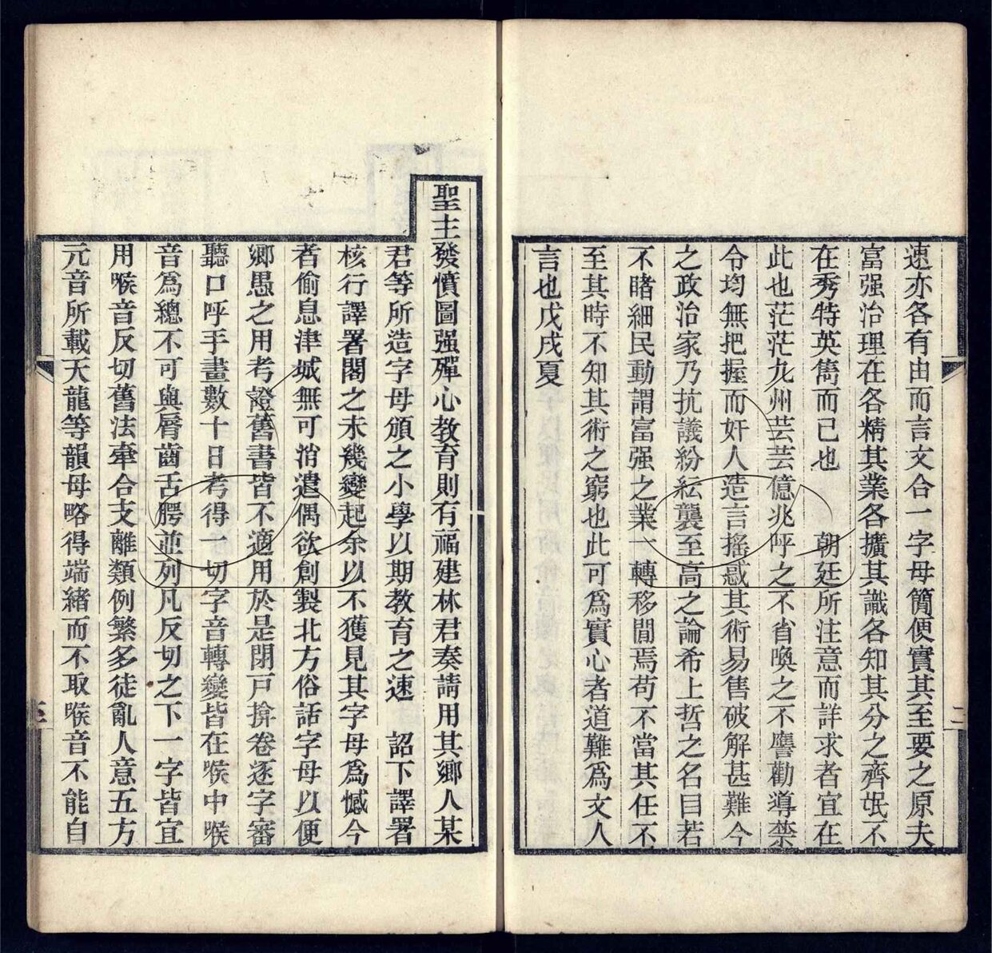 速亦各有由而言文合一字母簡便實其至要之原夫
富强治理在各精其業各擴其識各知其分之齊氓不
在秀特英儁而已也　朝廷所注意而詳求者宜在
此也茫茫九州芸芸億兆呼之不省喚之不譍勸導禁
令均無把握而奸人造言搖惑其術易售破解甚難今
之政治家乃抗議紛紜襲至高之論希上哲之名目若
不睹細民動謂富强之業一轉移閒焉苟不當其任不
至其時不知其術之窮也此可爲實心者道難爲文人
言也戊戌夏
二
聖主發憤圖强殫心教育則有福建林君奏請用其鄉人某
君等所造字母頒之小學以期教育之速　詔下譯署
核行譯署閣之未幾變起余以不獲見其字母爲憾今
者偷息津城無可消遣偶欲創製北方俗話字母以便
鄉愚之用考證舊書皆不適用於是閉戸揜卷逐字審
聽口呼手畫數十日考得一切字音轉變皆在喉中喉
音爲總不可與脣齒舌腭並列凡反切之下一字皆宜
用喉音反切舊法牽合支離類例繁多徒亂人意五方
元音所載天龍等韻母略得端緒而不取喉音不能自